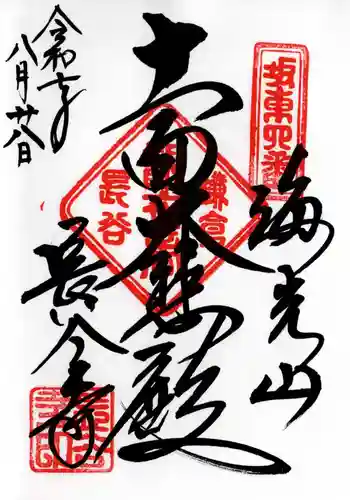 坂東四番
海光山
鎌倉
十一面大悲殿
長谷
長谷寺
令和
八月廿八日